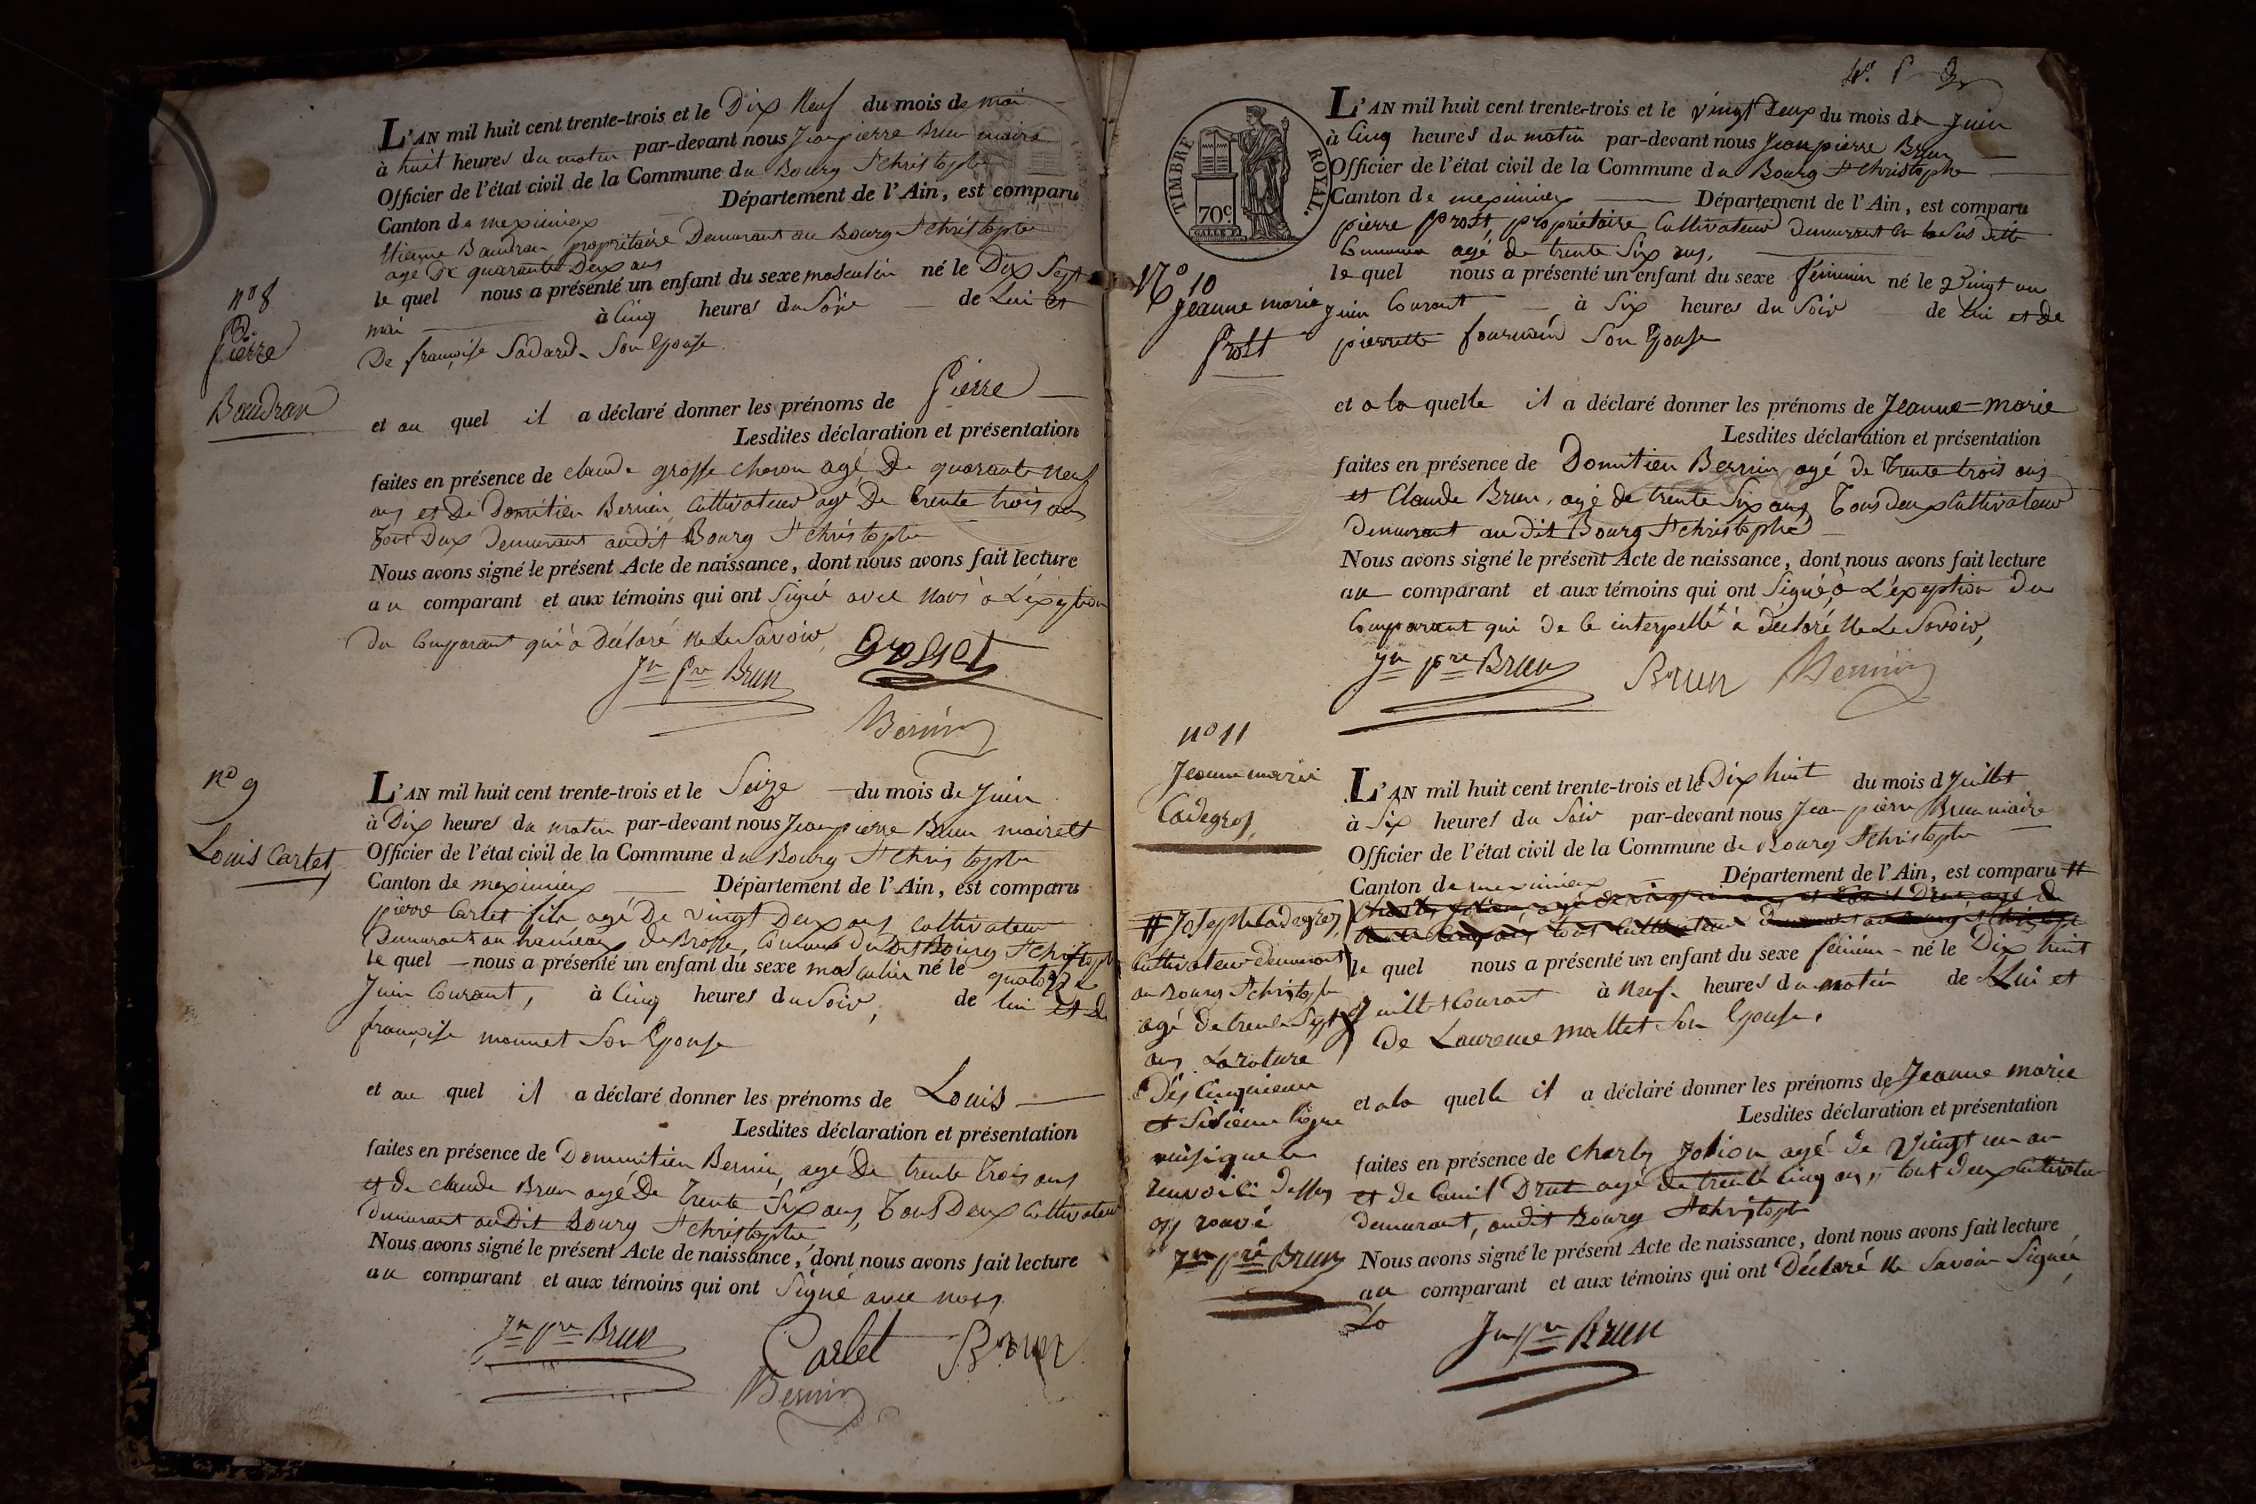 L'AN mil huit cent trente-trois et le Dix Neuf du mois de mai
à huit heures du matin par-devant nous Jeanpierre Brun maire
Officier de l'état civil de la Commune du Bourg St christophe
Canton de meximieux Département de l'Ain, est comparu
Etienne Baudran propriétaire Demurant au Bourg St christophe
age De quarante Deux ans
le quel nous a présenté un enfant du sexe masculin né le Dix Sept
mai à Cinq heures du Soir de Lui et
De françoise Sadard Son Epouse
n° 8
Pierre
Baudran
et au quel il a déclaré donner les prénoms de Pierre
Lesdites déclaration et présentation
faites en présence de claude grosse agé De quarante Neuf
ans et De Domitien Bernin Cultivateur agé De trente trois ans
Tout Deux Demurant audit Bourg St christophe
Nous avons signé le présent Acte de naissance, dont nous avons fait lecture
au comparant et aux témoins qui ont Signé avec Nous à L'éxeption
du Comparant qui a Déclaré Ne Le Savoir
Grosset
Jn Pre Brun
Bernin
n° 9
Louis Cartet
L'AN mil huit cent trente-trois et le Seize du mois de Juin
à Dix heures du matin par-devant nous Jeanpierre Brun maire et
Officier de l'état civil de la Commune du Bourg St christophe
Canton de meximieux Département de l'Ain, est comparu
pierre Cartet fils agé De vingt Deux ans Cultivateur
Demurant au hameau De Brosse, Commune Du Dit Bourg St christophe
le quel nous a présenté un enfant du sexe masculin né le quatorze
Juin Courant, à Cinq heures du Soir, de lui et de
françoise monnet Son Epouse
et au quel il a déclaré donner les prénoms de Louis
Lesdites déclaration et présentation
faites en présence de Dommitien Bernin, agé De trente Trois ans
et de claude Brun agé De Trente Six ans, Tous Deux Cultivateur
demurant audit Bourg St christophe
Nous avons signé le présent Acte de naissance, dont nous avons fait lecture
au comparant et aux témoins qui ont Signé avec nous
Jn pre Brun
Cartet Brun
Bernin
TIMBRE ROYAL.
70c.
L'AN mil huit cent trente-trois et le vingt Deux du mois de Juin
à Cinq heures du matin par-devant nous Jeanpierre Brun
Officier de l'état civil de la Commune du Bourg St christophe
Canton de meximieux Département de l'Ain, est comparu
pierre Prost, proprietaire Cultivateur demurant en la Sus ditte
Commune agé de trente Six ans,
le quel nous a présenté un enfant du sexe féminin né le Vingt un
Juin Courant à Six heures du Soir de lui et de
pierrette Son Epouse
N° 10
Jeanne marie
Prost
et a la quelle il a déclaré donner les prénoms de Jeanne-marie
Lesdites déclaration et présentation
faites en présence de Domitien Bernin agé de trente trois ans
et Claude Brun, agé de trente Six ans, Tous deux Cultivateur
demurant au dit Bourg St christophe
Nous avons signé le présent Acte de naissance, dont nous avons fait lecture
au comparant et aux témoins qui ont Signé, à L'éxeption du
Comparant qui de ce interpellé a déclaré Ne Le Savoir,
Jn pre Brun Brun Bernin
n° 11
Jeanne marie
Cadegros
L'AN mil huit cent trente-trois et le Dix huit du mois d Juillet
à Six heures du Soir par-devant nous Jean pierre Brun maire
Officier de l'état civil de la Commune de Bourg St christophe
Canton de meximieux Département de l'Ain, est comparu #
le quel nous a présenté un enfant du sexe féminin né le Dix huit
Juillet Courant à Neuf heures du matin de Lui et
de Laurence mallet Son Epouse.
# Joseph Cadegros,
Cultivateur demurant
au Bourg St christophe
agé de trente Sept
ans La rature
Des Cinquieme
et Sixieme ligne
ainsi que le
renvoi Ci Dessus
approuvé
Jn pre Brun
et a la quelle il a déclaré donner les prénoms de Jeanne marie
Lesdites déclaration et présentation
faites en présence de charles Jolion agé de Vingt un an
et de Drut agé de trente Cinq ans, tout deux Cultivateur
demurant, audit Bourg St christophe
Nous avons signé le présent Acte de naissance, dont nous avons fait lecture
au comparant et aux témoins qui ont Déclaré Ne Savoir Signée
Jn pre Brun